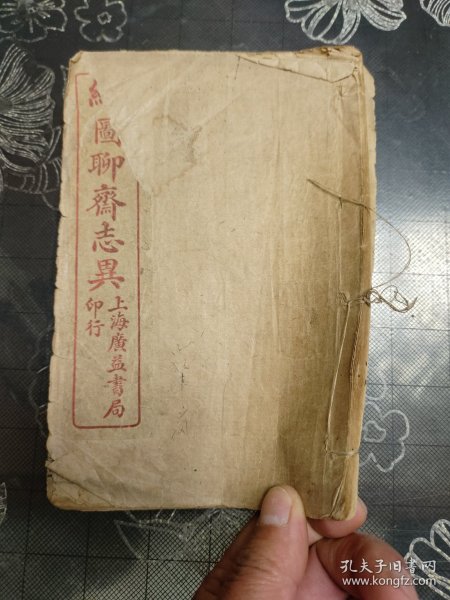 圖聊齋志異
上海廣益書局
印行
孔夫子旧书网
www.kongfz.com